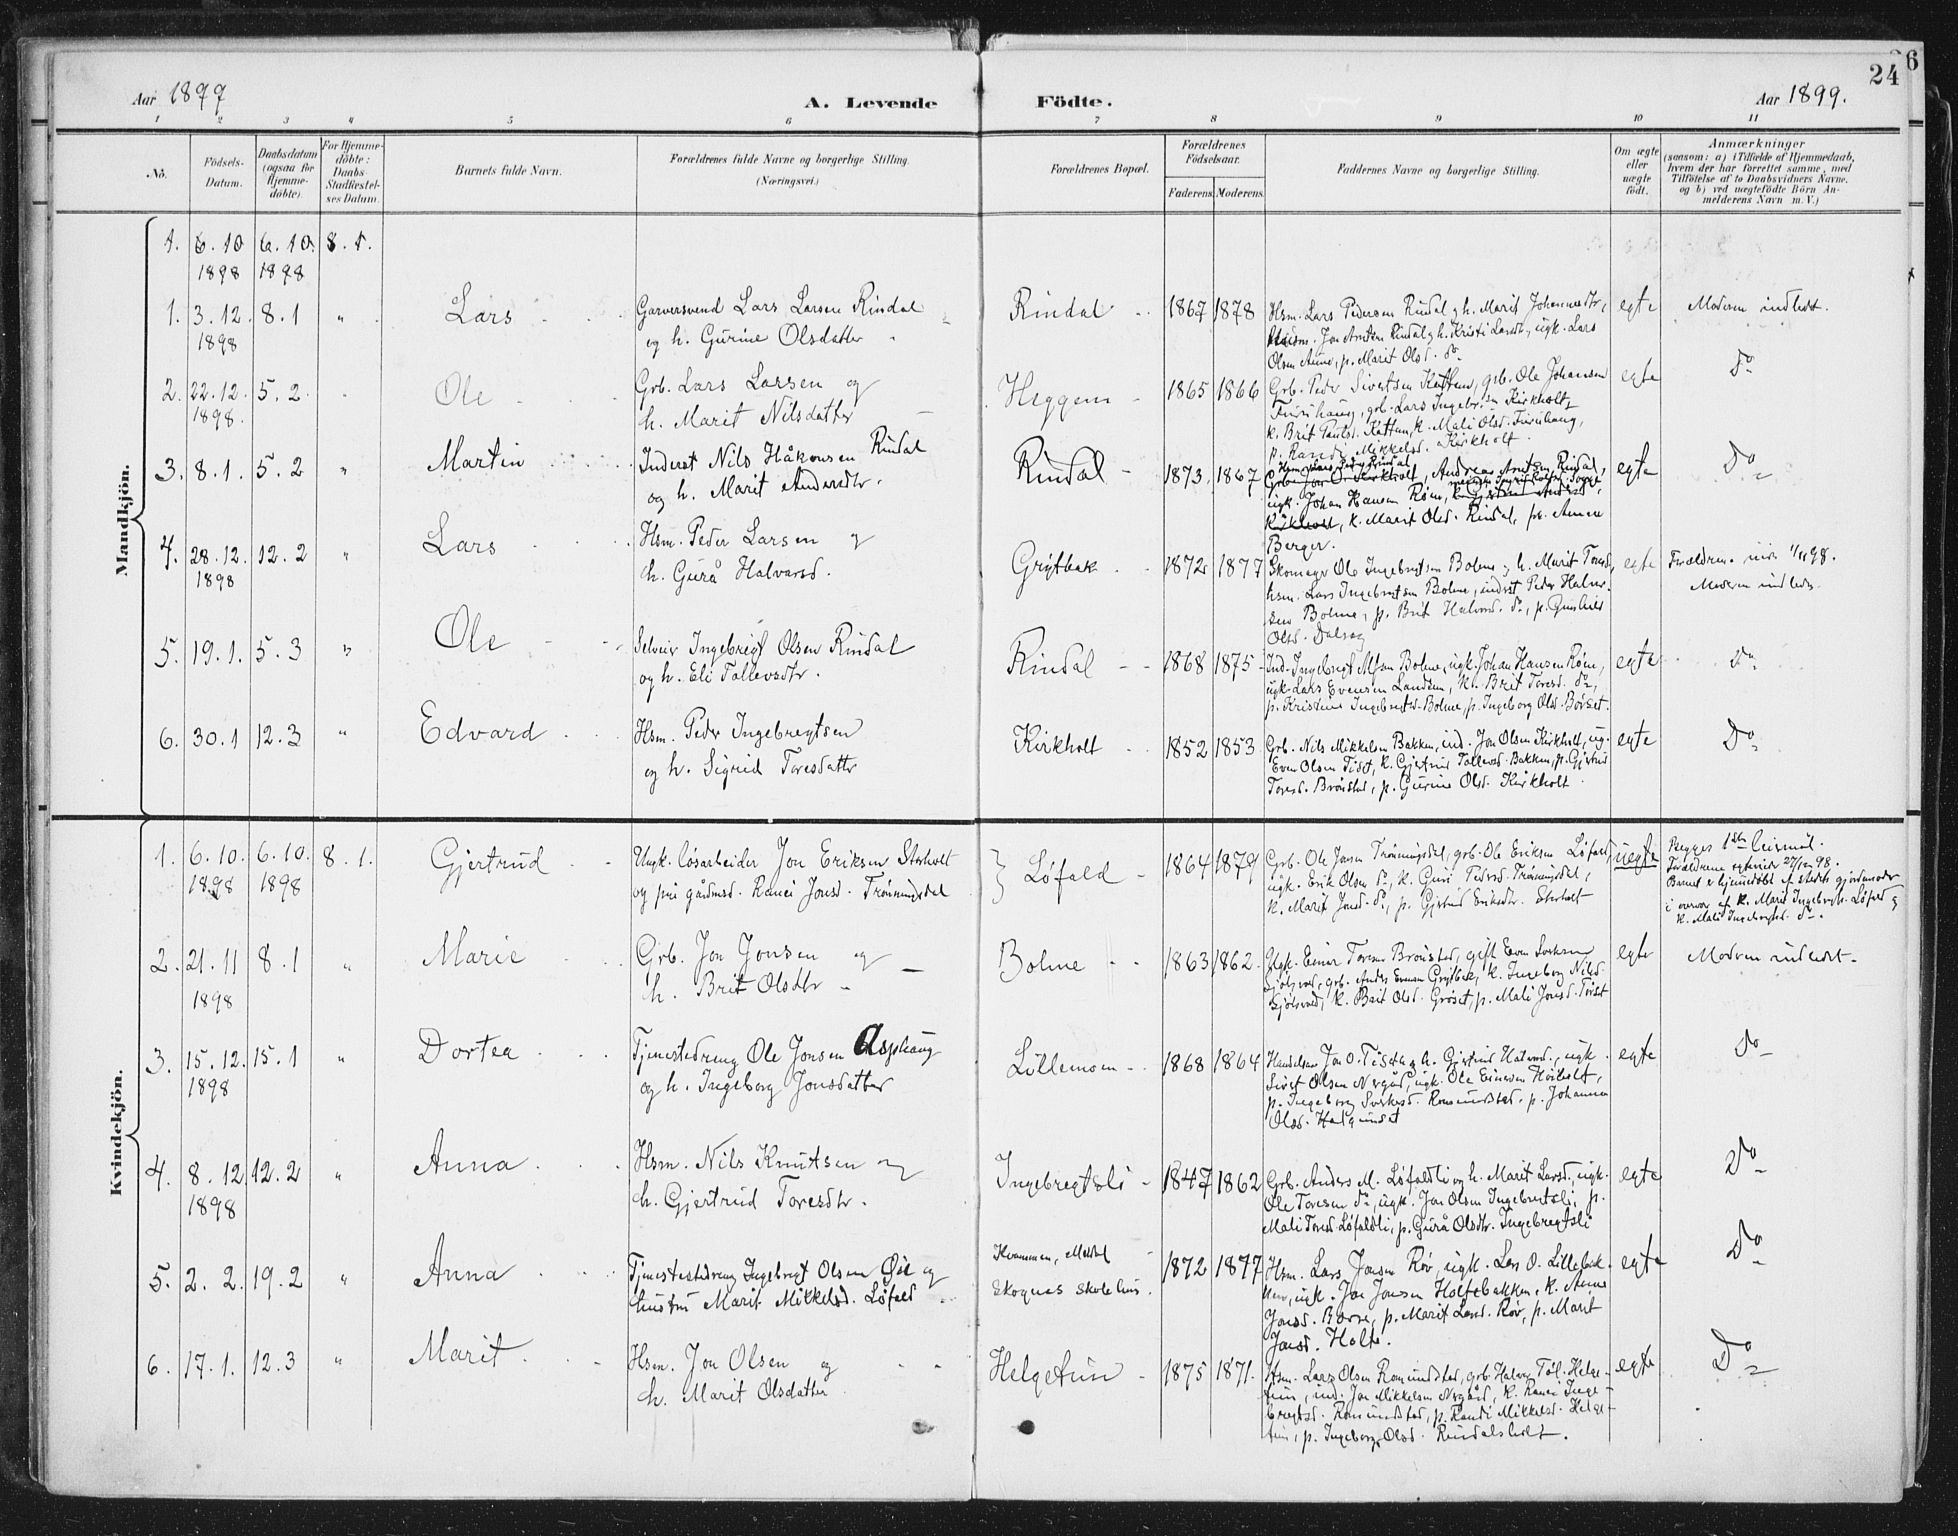 24
6
Aar 1899
A. Levende
Födte.
Aar 1899.
1 2 3 4 5 6 7 8 9 10 11
No.
Födsels-
Datum.
Daabsdatum
(ogsaa for
Hjemme-
döbte).
For Hjemme-
döbte:
Daabs-
Stadfæstel-
ses Datum.
Barnets fulde Navn.
Forældrenes fulde Navne og borgerlige Stilling.
(Næringsvei.)
Forældrenes Bopæl.
Forældrenes
Födselsaar.
Faderens. Moderens.
Faddernes Navne og borgerlige Stilling.
Om ægte
eller
uægte
födt.
Anmærkninger
(saasom: a) i Tilfælde af Hjemmedaab,
hvem der har forrettet samme, med
Tilföielse af to Daabsvidners Navne.
og b) ved uægtefödte Börn An-
melderens Navn m. V.)
Mandkjön.
1. 6.10 6.10. 8.1.
1898 1898
1. 3.12. 8.1 " Lars
1898
Garversvend Lars Larsen Rindal
og h. Gurine Olsdatter
Rindal 1867 1878
Hsm. Lars Pedersen Rindal og h. Marit Johannesdtr,
Jon Arntsen Rindal og h. Kristi Larsdtr, ugk. Lars
Olsen Aune, p. Marit Olsd. do
egte Moderen indledt.
2. 22.12. 5.2 Ole
1898.
Grb. Lars Larsen og
h. Marit Nilsdatter
Heggem 1865 1866
Grb. Peder Sivertsen Kattem, grb. Ole Johansen
Furuhaug, grb. Lars Ingebr.sen Kirkholt,
k. Brit Paulsd. Kattum, k. Mali Olsd. Furuhaug,
p. Randi Mikkelsd. Kirkholt.
egte Do
3. 8.1. 5.2 " Martin
Inderst Nils Håkonsen Rindal
og h. Marit Andersdtr.
Rindal 1873. 1867
Andreas Arntsen Rindal,
ugk. Johan Hansen Røen,
Kirkholt, k. Marit Olsd. Rindal, p. Anne
Berger.
egte Do
4. 28.12. 12.2 " Lars
1898
Hsm. Peder Larsen og
h. Gurå Halvorsd.
Grytbak 1872 1877
Skomager Ole Ingebrigtsen Bolme og h. Marit Toresd,
hsm. Lars Ingebrigtsen Bolme, inderst Peder Halvor-
sen Bolme, p. Brit Halvorsd. do, p. Gunhild
Olsd. Dalseg
egte Forældrene 1/11 98.
Moderen indledt.
5. 19.1. 5.3 " Ole
Selveier Ingebrigt Olsen Rindal
og h. Eli Tollevsdtr.
Rindal 1868 1875
Ind. Ingebrigt Bolme, ugk. Johan Hansen Røen,
ugk. Lars Evensen Landsem, k. Brit Toresd. do,
p. Kristine Ingebrigtsd. Bolme, p. Ingeborg Olsd. Børset.
egte Do
6. 30.1 12.3 " Edvard
Hsm. Peder Ingebregtsen
og h. Sigrid Toresdatter
Kirkholt 1852 1853
Grb. Nils Mikkelsen Bakken, ind. Jon Olsen Kirkholt, ug.
Even Olsen Tiset, k. Gjertrud Tollevsd. Bakken, p. Gjertrud
Toresd. Brønstad, p. Gurine Olsd. Kirkholt.
egte Do
Kvindekjön.
1. 6.10. 6.10. 8.1. Gjertrud
1898 1898
Ungk. løsarbeider Jon Eriksen Storholt
og pie gårdmsd. Ranei Jonsd. Trønningsdal
Løfald 1864 1879
Grb. Ole Jonsen Trønningsdal, grb. Ole Eriksen Løfald,
ugk. Erik Olsen do, k. Guri Pedersd. Trønningsdal,
k. Marit Jonsd. do, p. Gjertrud Eriksdtr. Storholt
uegte Begges 1ste leiermål.
Forældrene egteviede 27/12 98.
Barnet er hjemmedøbt af stedets gjordmoder
i overvær af k. Marit Ingebrigtsd. Løfald og
k. Mali Ingebrigtsd. do.
2. 21.11 8.1 " Marie
1898
Grb. Jon Jonsen og
h. Brit Olsdtr
Bolme 1863 1862.
Ugk. Einar Toresen Brønstad, gift Even Sivertsen
Gjølgvold, grb. Anders Evensen Grytbak, k. Ingeborg Nilsd.
Gjølsvold, k. Brit Olsd. Grøset, p. Mali Jonsd. Tiset
egte Moderen indledt.
3. 15.12. 15.1 " Dortea
1898
Tjenestedreng Ole Jonsen Asphaug
og h. Ingeborg Jonsdatter
Lillemoen 1868 1864
Handelsm. Jon O. Tiset og h. Gjertrud Halvorsd., ugk.
Sivert Olsen Nergård, ugk. Ole Einarsen Høiholt,
p. Ingeborg Sivertsd. Romundstad, p. Johanna
Olsd. Halgunset
egte Do
4. 8.12 12.2 " Anna
1898
Hsm. Nils Knutsen og
h. Gjertrud Toresdtr.
Ingebregtsli 1847 1862
Grb. Anders M. Løfaldli og h. Marit Larsd., ugk.
Ole Toresen do, ugk. Jon Olsen Ingebregtsli, p.
Mali Toresd. Løfaldli, p. Gurå Olsdtr. Ingebregtsli
egte Do
5. 2.2. 19.2 " Anna
Tjenestedreng Ingebrigt Olsen Øie og
hustru Marit Mikkelsd. Løfald
Kvammen, Meldal
Skognes skolehus.
1872 1877
Hsm. Lars Jonsen Røv, ugk. Lars O. Lillebak-
ken, ugk. Jon Jonsen Holtebakken, k. Anne
Jonsd. Børre, p. Marit Larsd. Røv, p. Marit
Jonsd. Holte.
egte Do
6. 17.1. 12.3 " Marit
Hsm. Jon Olsen og
h. Marit Olsdatter
Helgetun 1875 1871.
Hsm. Lars Olsen Romundstad, grb. Halvor Tøl. Helge-
tun, ind. Jon Mikkelsen Nergård, k. Ranei Inge-
brigtsd. Romundstad, p. Randi Mikkelsd. Helge-
tun, p. Ingeborg Olsd. Rindalsholt.
egte Do